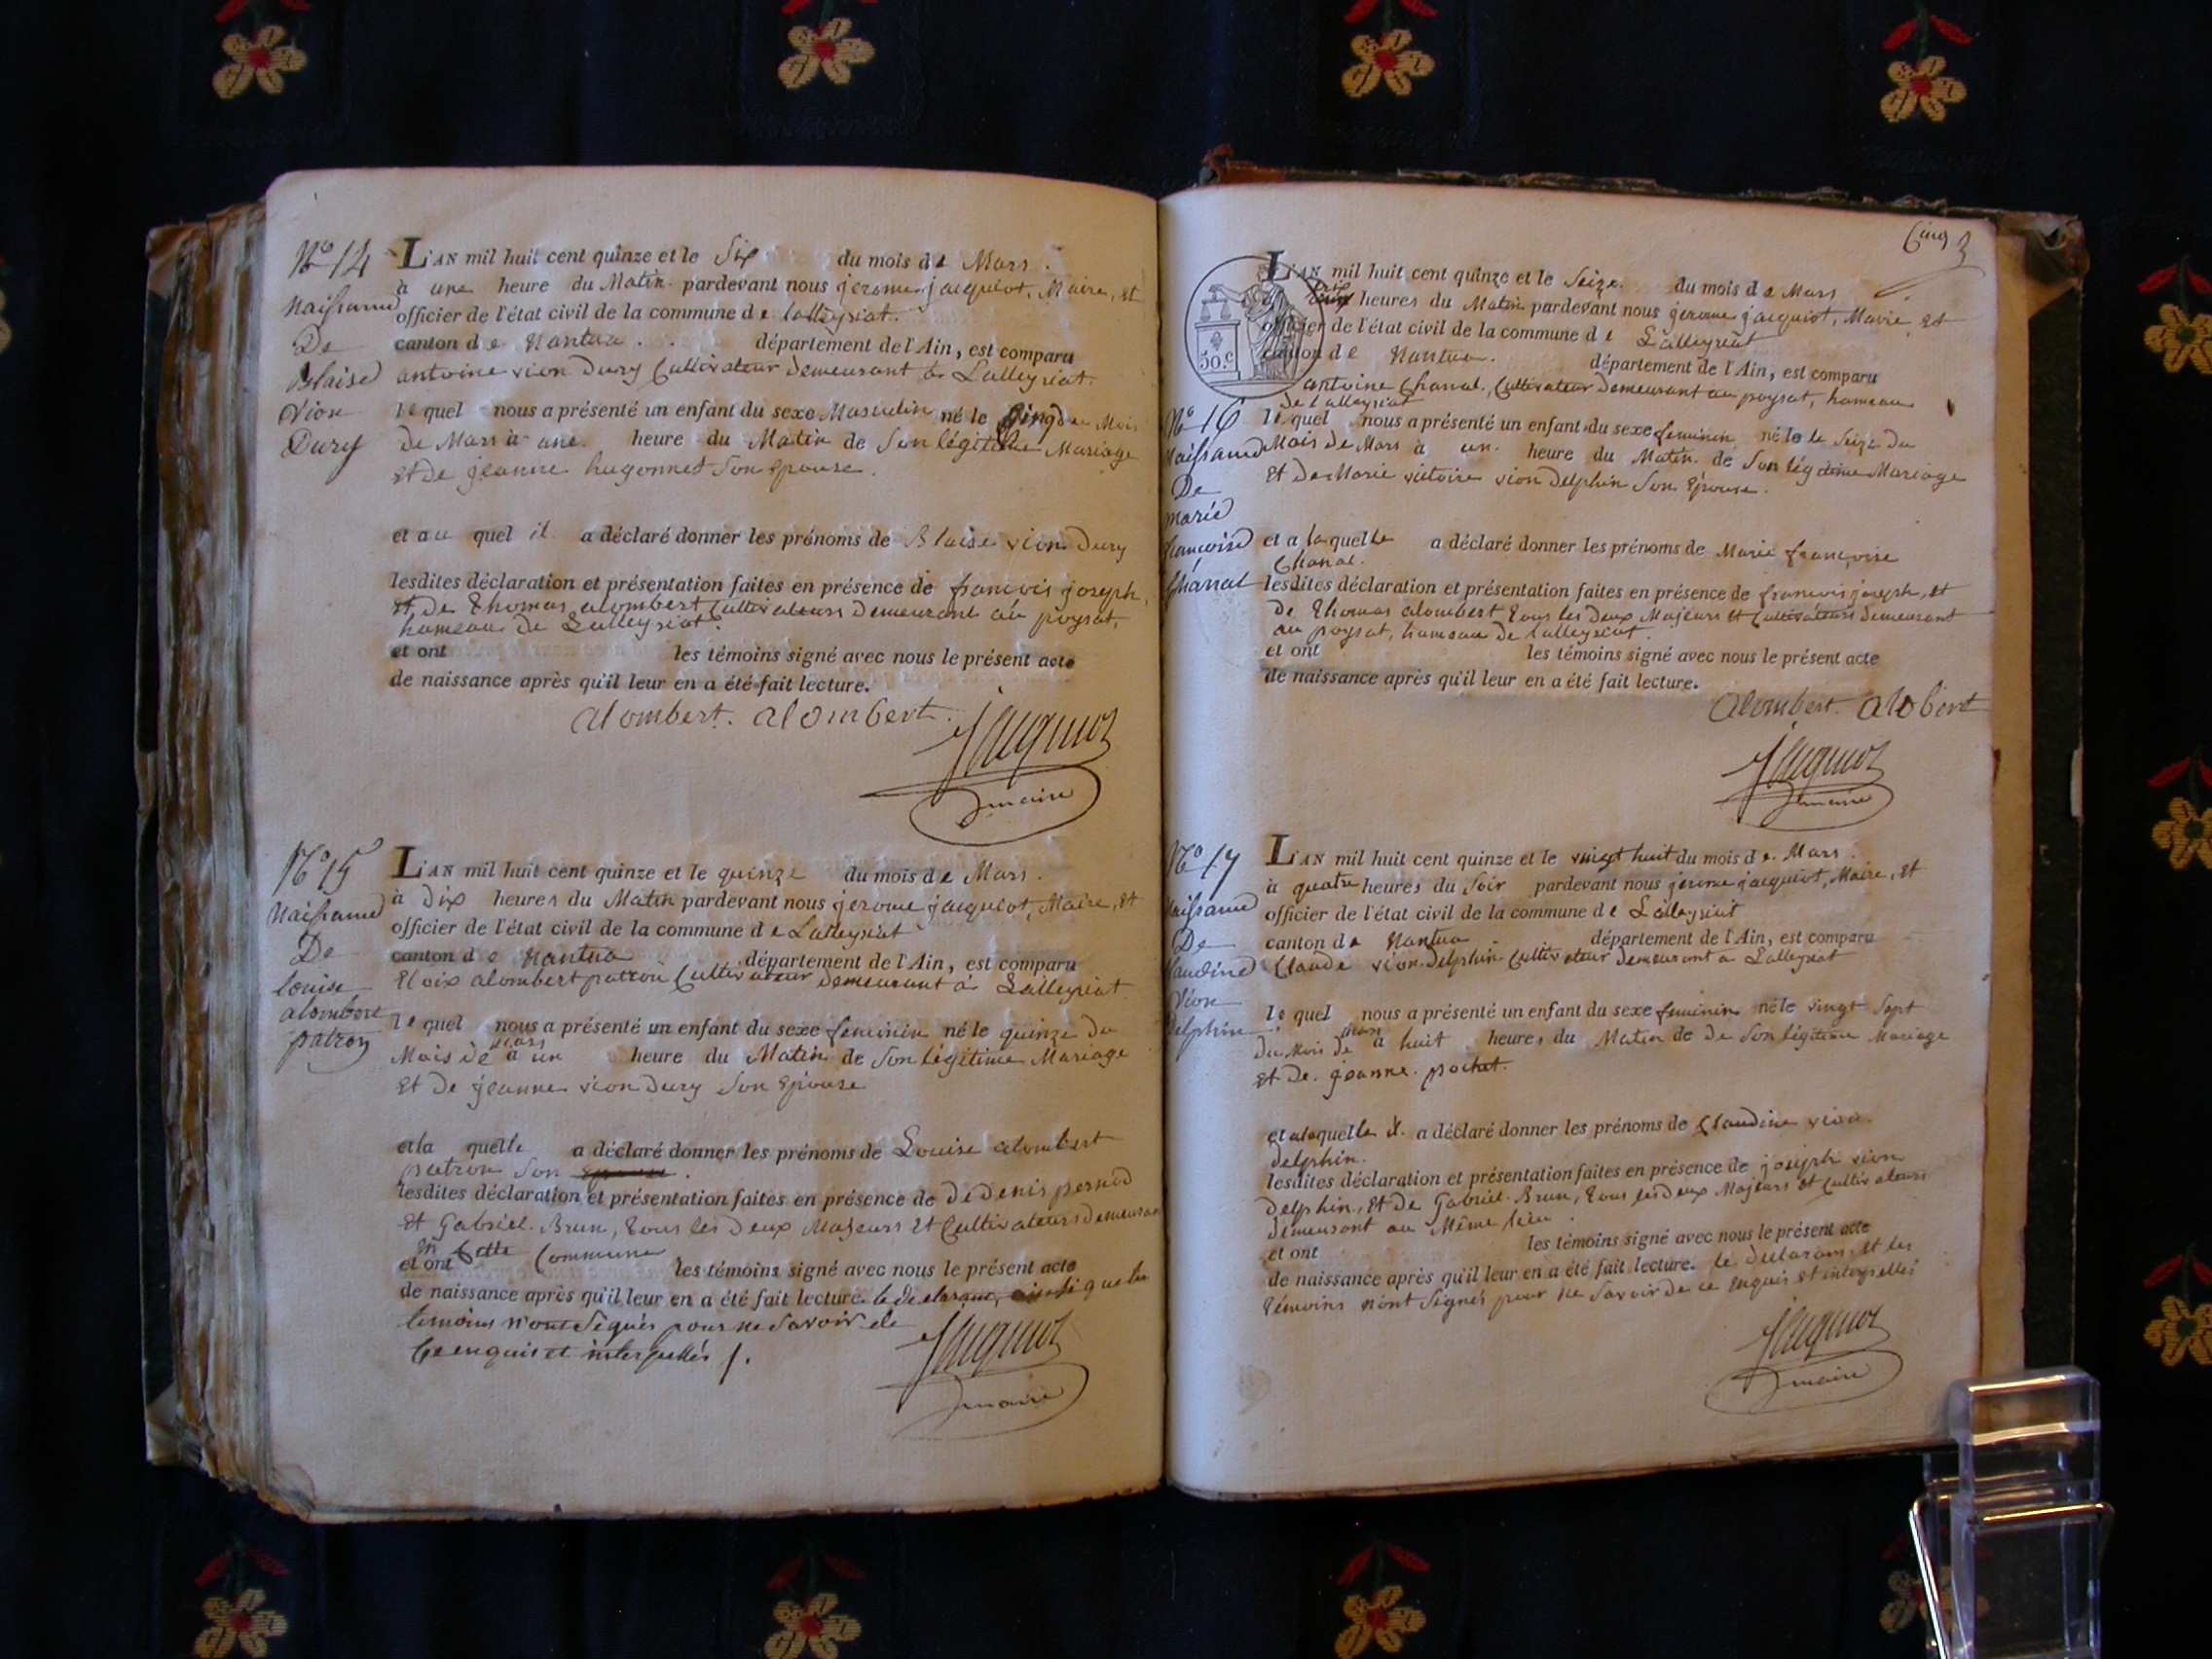 N° 14
Naissance
De
Blaise
Vion
Dury
L'AN mil huit cent quinze et le Six du mois de Mars.
à une heure du Matin pardevant nous jerome jacquiot, Maire, et
officier de l'état civil de la commune de Lalleyriat.
canton de Nantua. département de l'Ain, est comparu
antoine vion Dury Cultivateur Demeurant à Lalleyriat.
lequel nous a présenté un enfant du sexe Masculin né le Cinq du Mois
de Mars à une heure du Matin de Son légitime Mariage
et de jeanne hugonnet Son Epouse.
et au quel il a déclaré donner les prénoms de Blaise vion Dury
lesdites déclaration et présentation faites en présence de francois joseph,
et de Thomas alombert Cultivateurs Demeurant au poysat,
hameau de Lalleyriat.
et ont les témoins signé avec nous le présent acte
de naissance après qu'il leur en a été fait lecture.
alombert. alombert.
Jacquiot
maire
N° 15
Naissance
De
louise
alombert
patron
L'AN mil huit cent quinze et le quinze du mois de Mars.
à Dix heures du Matin pardevant nous jerome jacquiot, Maire, et
officier de l'état civil de la commune de Lalleyriat
canton de Nantua département de l'Ain, est comparu
Eloix alombert patron Cultivateur Demeurant à Lalleyriat
lequel nous a présenté un enfant du sexe feminin né le quinze du
Mois de mars à un heure du Matin de Son légitime Mariage
et de jeanne vion Dury Son Epouse
et la quelle a déclaré donner les prénoms de Louise alombert
patron Son Epouse.
lesdites déclaration et présentation faites en présence de Denis pernod
et Gabriel Brun, Tous les Deux Majeurs et Cultivateurs Demeurant
en Cette Commune
et ont les témoins signé avec nous le présent acte
de naissance après qu'il leur en a été fait lecture. le declarant, ainsi que les
témoins n'ont Signés pour ne Savoir de
Ce enquis et interpellés /.
Jacquiot
maire
Cinq
50.c
L'AN mil huit cent quinze et le Seize du mois de Mars
dix heures du Matin pardevant nous jerome jacquiot, Maire et
officier de l'état civil de la commune de Lalleyriat
canton de Nantua. département de l'Ain, est comparu
antoine Charnal, Cultivateur Demeurant au poysat, hameau
de Lalleyriat
N° 16
Naissance
De
marie
francoise
Charnal
lequel nous a présenté un enfant du sexe feminin né le le Seize du
Mois de Mars à un heure du Matin de Son légitime Mariage
et de Marie victoire vion Delphin Son Epouse.
et a laquelle a déclaré donner les prénoms de Marie françoise
Charnal.
lesdites déclaration et présentation faites en présence de francois joseph, et
de Thomas alombert Tous les Deux Majeurs et Cultivateurs Demeurant
au poysat, hameau de Lalleyriat.
et ont les témoins signé avec nous le présent acte
de naissance après qu'il leur en a été fait lecture.
alombert alobert
Jacquiot
maire
N° 17
Naissance
De
Claudine
Vion
Delphin
L'AN mil huit cent quinze et le vingt huit du mois de Mars.
à quatre heures du Soir pardevant nous jerome jacquiot, Maire, et
officier de l'état civil de la commune de Lalleyriat
canton de Nantua département de l'Ain, est comparu
Claude vion Delphin Cultivateur Demeurant à Lalleyriat
lequel nous a présenté un enfant du sexe feminin né le vingt Sept
du Mois de mars à huit heures du Matin de de Son légitime Mariage
et de jeanne pochet.
et a laquelle il a déclaré donner les prénoms de Claudine vion
Delphin.
lesdites déclaration et présentation faites en présence de joseph vion
Delphin, et de Gabriel Brun, Tous les Deux Majeurs et Cultivateurs
Demeurant au Même lieu.
et ont les témoins signé avec nous le présent acte
de naissance après qu'il leur en a été fait lecture. le declarant et les
Témoins n'ont Signés pour ne Savoir de ce enquis et interpellés
Jacquiot
maire